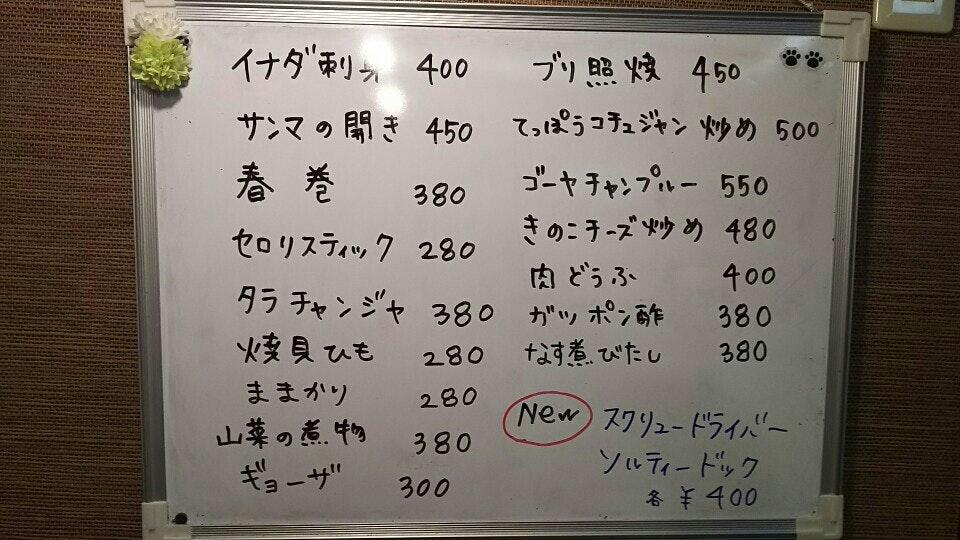 イナダ刺身 400
サンマの開き 450
春巻 380
セロリスティック 280
タラチャンジャ 380
焼貝ひも 280
ままかり 280
山菜の煮物 380
ギョーザ 300
ブリ照焼 450
てっぽうコチュジャン炒め 500
ゴーヤチャンプルー 550
きのこチーズ炒め 480
肉どうふ 400
ガツポン酢 380
なす煮びたし 380
New スクリュードライバー
ソルティードック
各¥400